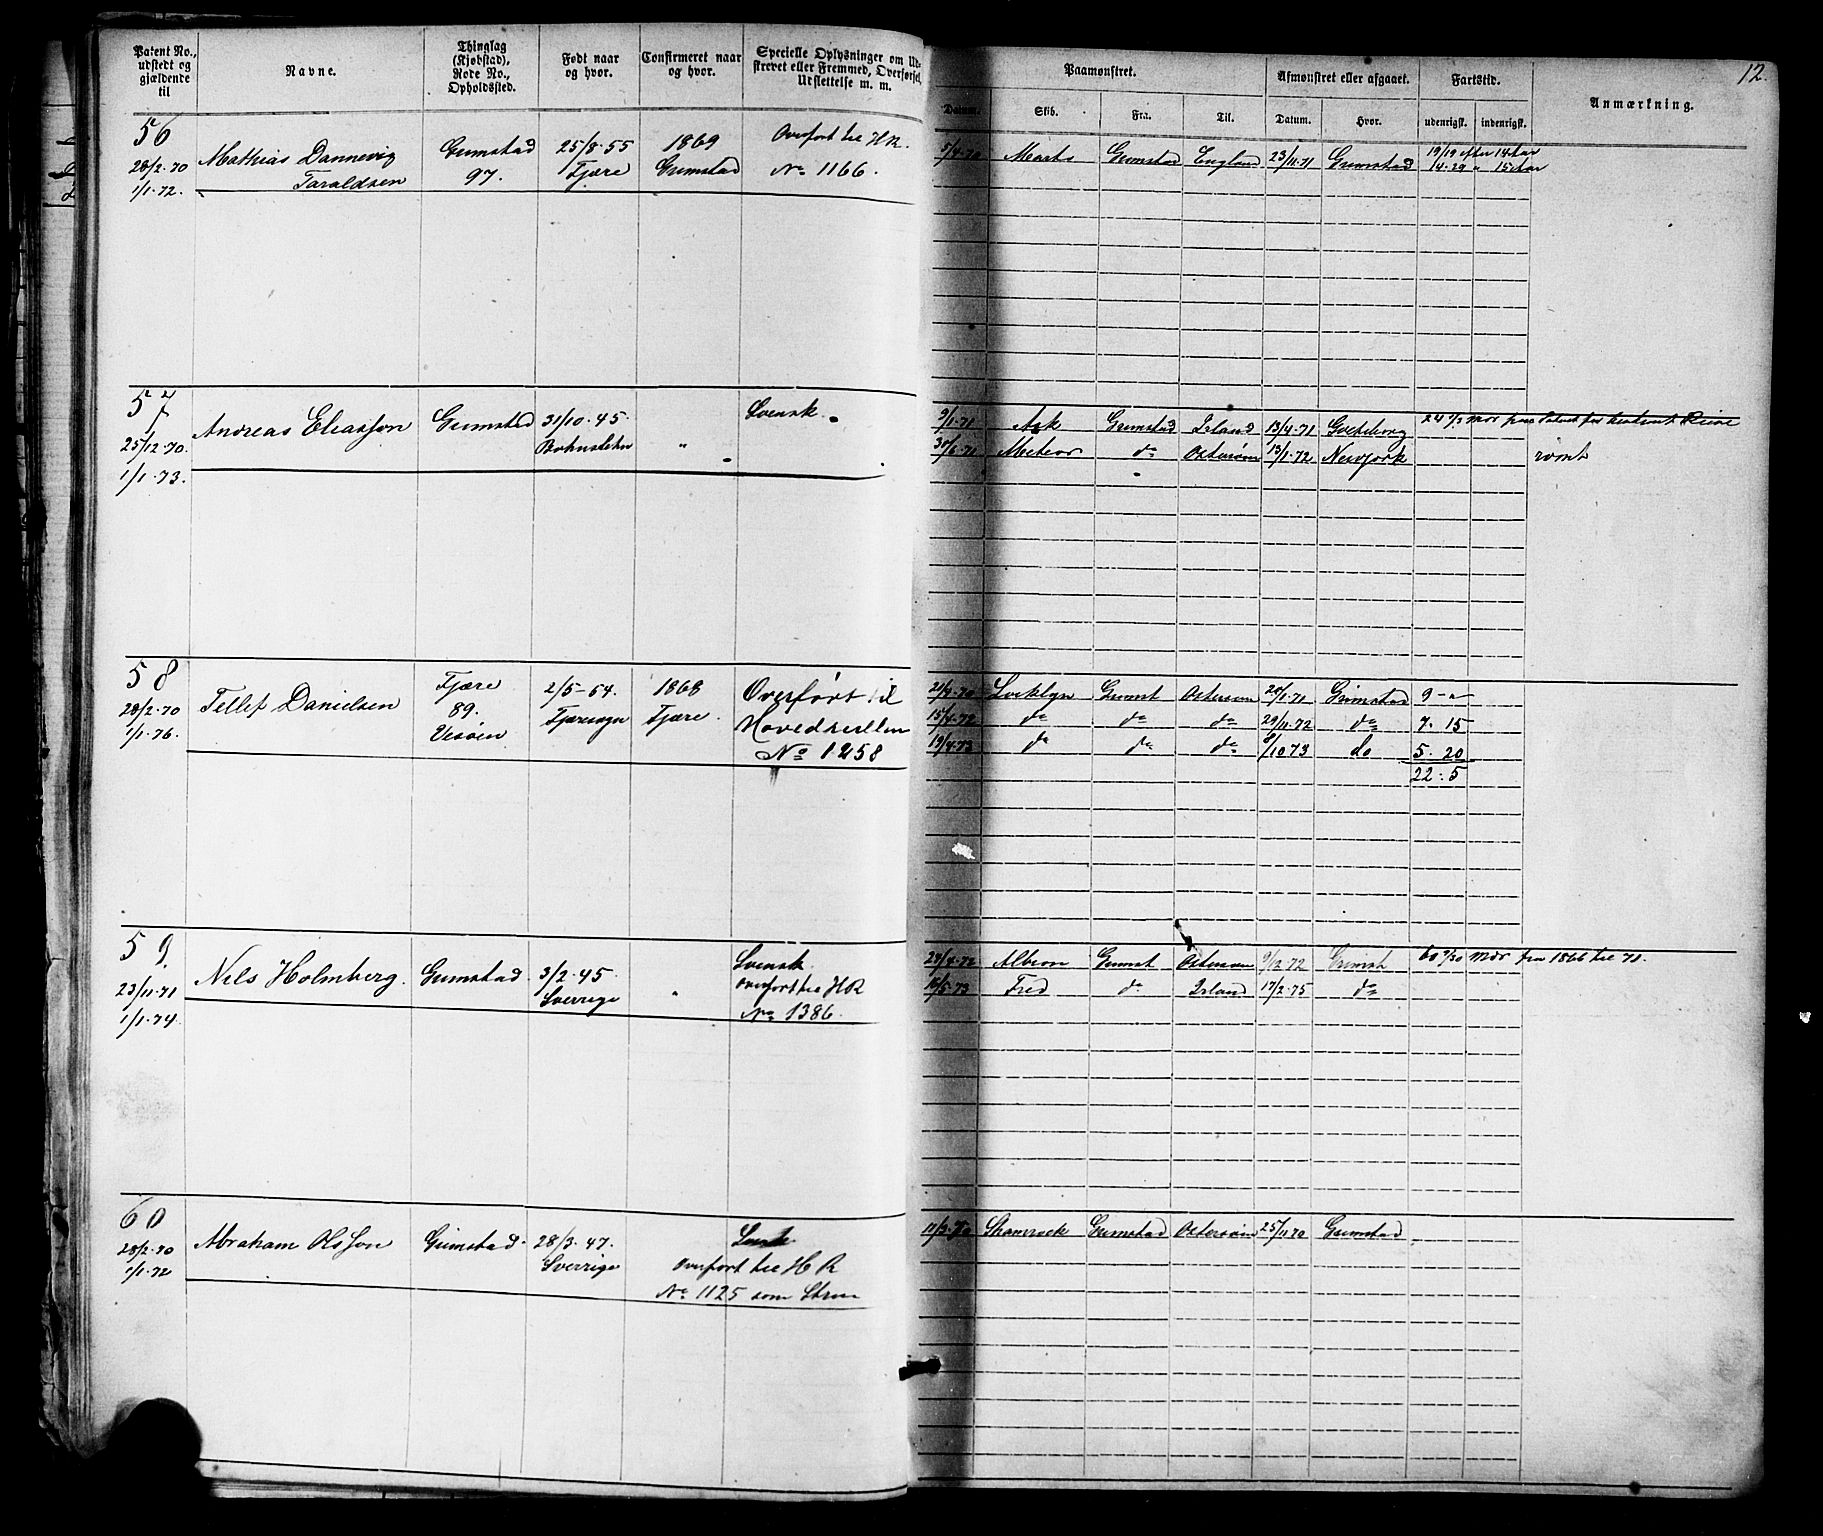 12.
Patent No., udstedt og gjældende til
Navne.
Thinglag (Kjøbstad), Rode No., Opholdssted.
Født naar og hvor.
Confirmeret naar og hvor.
Specielle Oplysninger om Udskrevet eller Fremmed, Overførsel, Udslettelse m. m.
Paamønstret.
Afmønstret eller afgaaet.
Fartstid.
Anmærkning.
Datum.
Skib.
Fra.
Til.
Datum.
Hvor.
udenrigsk.
indenrigsk.
56
28/2.70
1/1.72.
Mathias Dannevig
Taraldsen
Grimstad
97.
25/8.55
Fjære
1869
Grimstad
Overført til H.R.
No 1166.
5/4.70 Grimstad England 23/11.71 Grimstad 19/19 efter 14 Aar
14.29 " 15 Aar
57
25/12.70.
1/1.73.
Andreas Eliasson
Grimstad
31/10.45.
Bohuslehn
"
Svensk.
9/1.71 Ask Grimstad Irland 13/4.71 Goteborg
30/6.71 Meteor do Østersøen 13/1.72 Newyork
rømt
58
28/2.70
1/1.76.
Tellef Danielsen
Fjære
89.
Vessøen
2/5-54.
Fjæresogn
1868
Fjære.
Overført til
Hovedrullen
No 1258
21/4.70 Grimst Østersøen 28/1.71 Grimstad 9 - "
15/4.72 do do do 29/11.72 do 7. 15
19/4.73 do do do 8/10 73 do 5. 20
22. 5
59.
23/11.71
1/1.74.
Nils Holmberg.
Grimstad
3/2.45.
Sverrige
"
Svensk.
Overført til H R
No 1386.
24/4.72 Albion Grimst Østersøen 9/12.72 Grimst 60 7/30 Mdr fra 1866 til 71.
16/5.73 Fred do Irland 17/2.75 do
60
28/2.70
1/1.72
Abraham Olsson
Grimstad.
28/3.47.
Sverrige
Overført til H R
No 1125 som
11/3.70 Shamrock Grimstad Østersøen 25/11 70 Grimstad